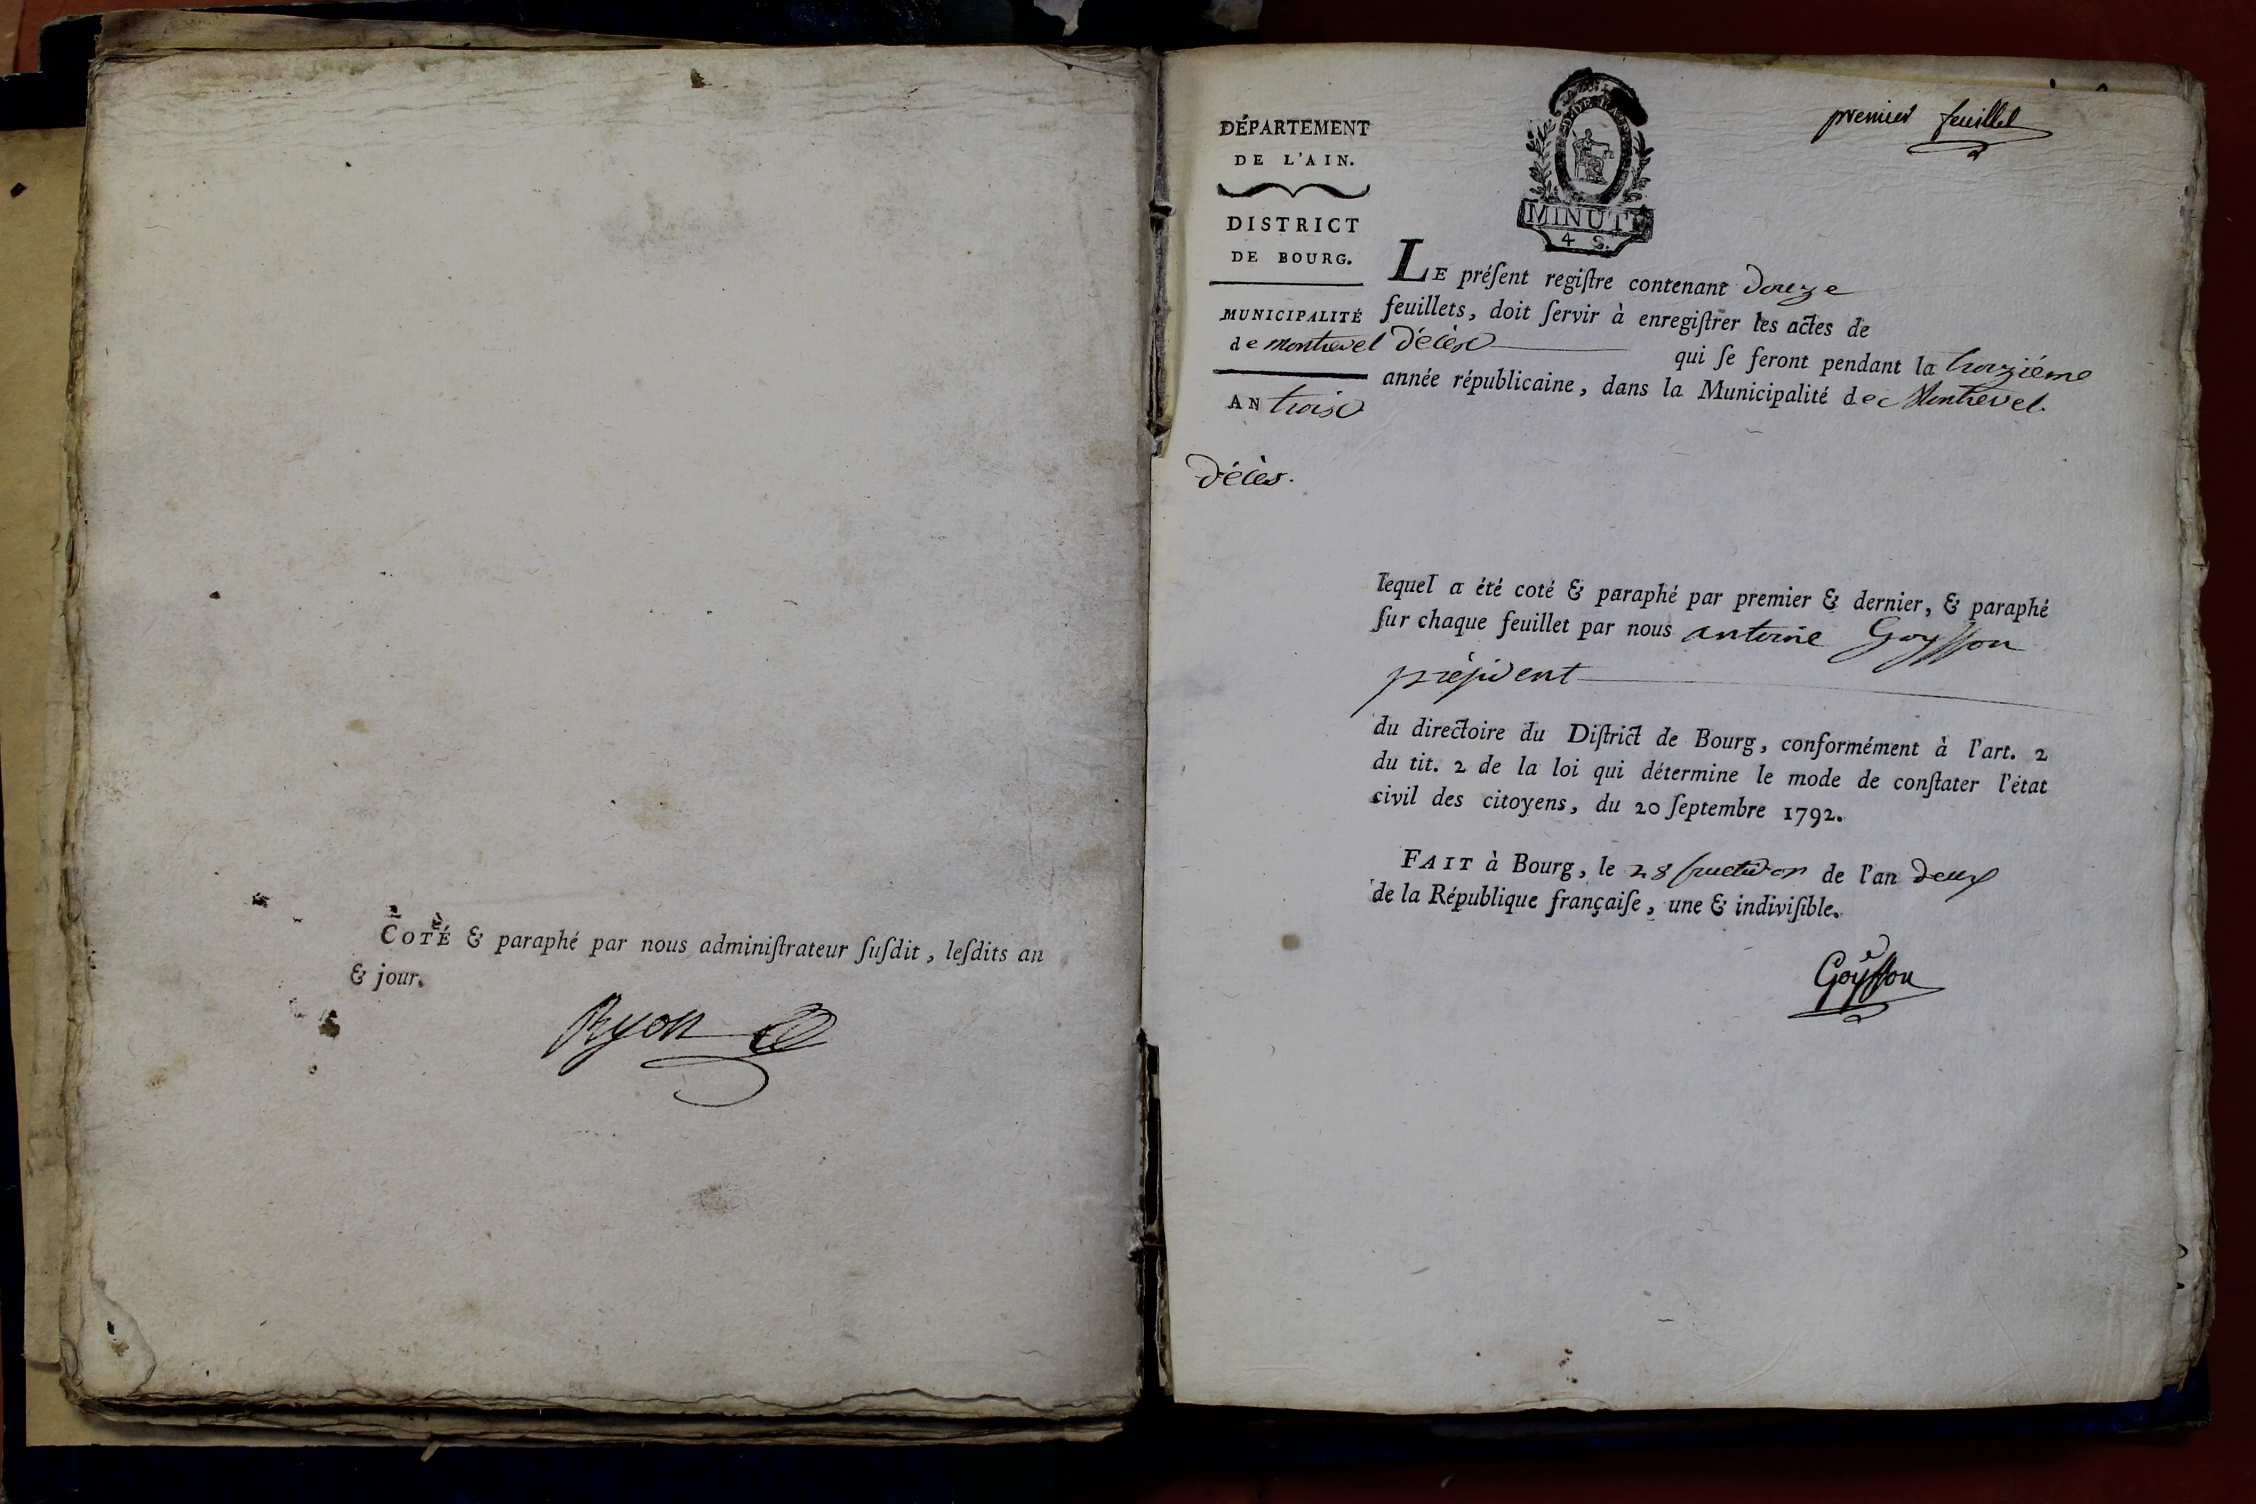 COTÉ & paraphé par nous adminiſtrateur ſuſdit, leſdits an
& jour.
Ryon
premier feuillet
DÉPARTEMENT
DE L'AIN.
DISTRICT
DE BOURG.
MUNICIPALITÉ
de Montrevel
AN trois
décès.
MINUTE
4 S.
LE préſent regiſtre contenant douze
feuillets, doit ſervir à enregiſtrer les actes de
décès qui ſe feront pendant la troiziéme
année républicaine, dans la Municipalité de Montrevel.
lequel a été coté & paraphé par premier & dernier, & paraphé
ſur chaque feuillet par nous antoine Goyſſon
préſident
du directoire du Diſtrict de Bourg, conformément à l'art. 2
du tit. 2 de la loi qui détermine le mode de conſtater l'état
civil des citoyens, du 20 ſeptembre 1792.
FAIT à Bourg, le 28 fructidor de l'an deux
de la République françaiſe, une & indiviſible.
Goyſſon